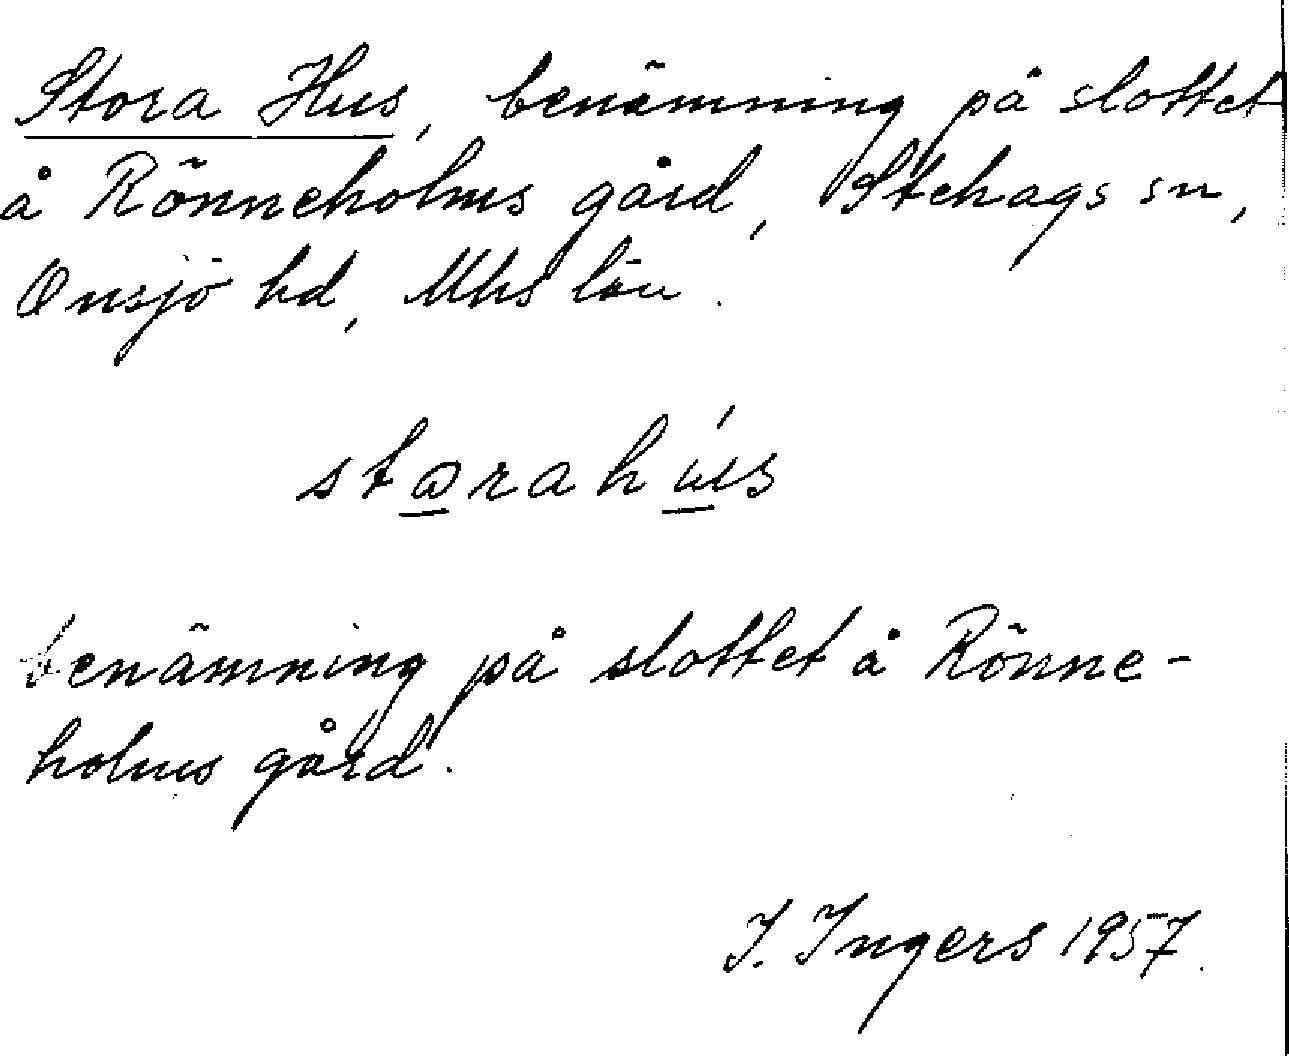 Stora Hus, benämning på slottet
å Rönneholms gård, Stehags sn,
Onsjö hd, Mhs län.
starahús
benämning på slottet å Rönne-
holms gård.
I. Ingers 1957.